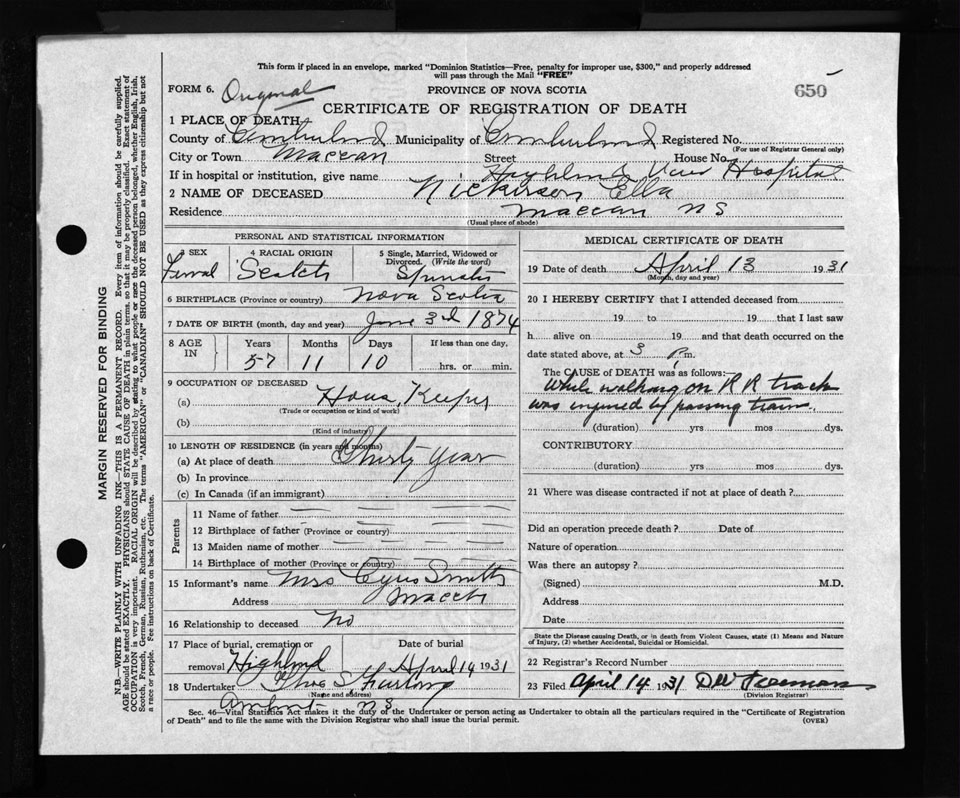 This form if placed in an envelope, marked "Dominion Statistics—Free, penalty for improper use, $300," and properly addressed
will pass through the Mail "FREE"
FORM 6. Original PROVINCE OF NOVA SCOTIA 650
CERTIFICATE OF REGISTRATION OF DEATH
1 PLACE OF DEATH
County of Cumberland Municipality of Cumberland Registered No.
(For use of Registrar General only)
City or Town Maccan Street House No.
If in hospital or institution, give name Highland View Hospital
2 NAME OF DECEASED Nickerson Ella
Residence Maccan N S
(Usual place of abode)
PERSONAL AND STATISTICAL INFORMATION
3 SEX 4 RACIAL ORIGIN 5 Single, Married, Widowed or
Divorced. (Write the word)
Scotch
6 BIRTHPLACE (Province or country) Nova Scotia
7 DATE OF BIRTH (month, day and year) June 3rd 1874
8 AGE IN Years Months Days If less than one day,
57 11 10 hrs. or min.
9 OCCUPATION OF DECEASED
(a) House Keeper
(Trade or occupation or kind of work)
(b)
(Kind of industry)
10 LENGTH OF RESIDENCE (in years and months)
(a) At place of death Thirty Year
(b) In province
(c) In Canada (if an immigrant)
Parents
11 Name of father
12 Birthplace of father (Province or country)
13 Maiden name of mother
14 Birthplace of mother (Province or country)
15 Informant's name Mrs Cyrus Smith
Address
16 Relationship to deceased No
17 Place of burial, cremation or Date of burial
removal Highland April 14 1931
18 Undertaker Thos S
(Name and address)
N S
MEDICAL CERTIFICATE OF DEATH
19 Date of death April 13 1931
(Month, day and year)
20 I HEREBY CERTIFY that I attended deceased from
19 to 19 that I last saw
h alive on 19 and that death occurred on the
date stated above, at 3 P m.
The CAUSE of DEATH was as follows:
While walking on R R track
was injured by passing train.
(duration) yrs mos dys.
CONTRIBUTORY
(duration) yrs mos dys.
21 Where was disease contracted if not at place of death ?
Did an operation precede death ? Date of
Nature of operation
Was there an autopsy ?
(Signed) M.D.
Address
Date
State the Disease causing Death, or in death from Violent Causes, state (1) Means and Nature
of Injury, (2) whether Accidental, Suicidal or Homicidal.
22 Registrar's Record Number
23 Filed April 14 1931 D W Freeman
(Division Registrar)
Sec. 46—Vital Statistics Act makes it the duty of the Undertaker or person acting as Undertaker to obtain all the particulars required in the "Certificate of Registration
of Death" and to file the same with the Division Registrar who shall issue the burial permit.
(OVER)
MARGIN RESERVED FOR BINDING
N.B.—WRITE PLAINLY WITH UNFADING INK—THIS IS A PERMANENT RECORD. Every item of information should be carefully supplied.
AGE should be stated EXACTLY. PHYSICIANS should STATE CAUSE OF DEATH in plain terms, so that it may be properly classified. Exact statement of
OCCUPATION is very important. RACIAL ORIGIN will be described by stating to what people or race the deceased person belonged, whether English, Irish,
Scotch, French, German, Russian, Ruthenian, etc. The terms "AMERICAN" or "CANADIAN" SHOULD NOT BE USED as they express citizenship but not
a race or people. Fee instructions on back of Certificate.